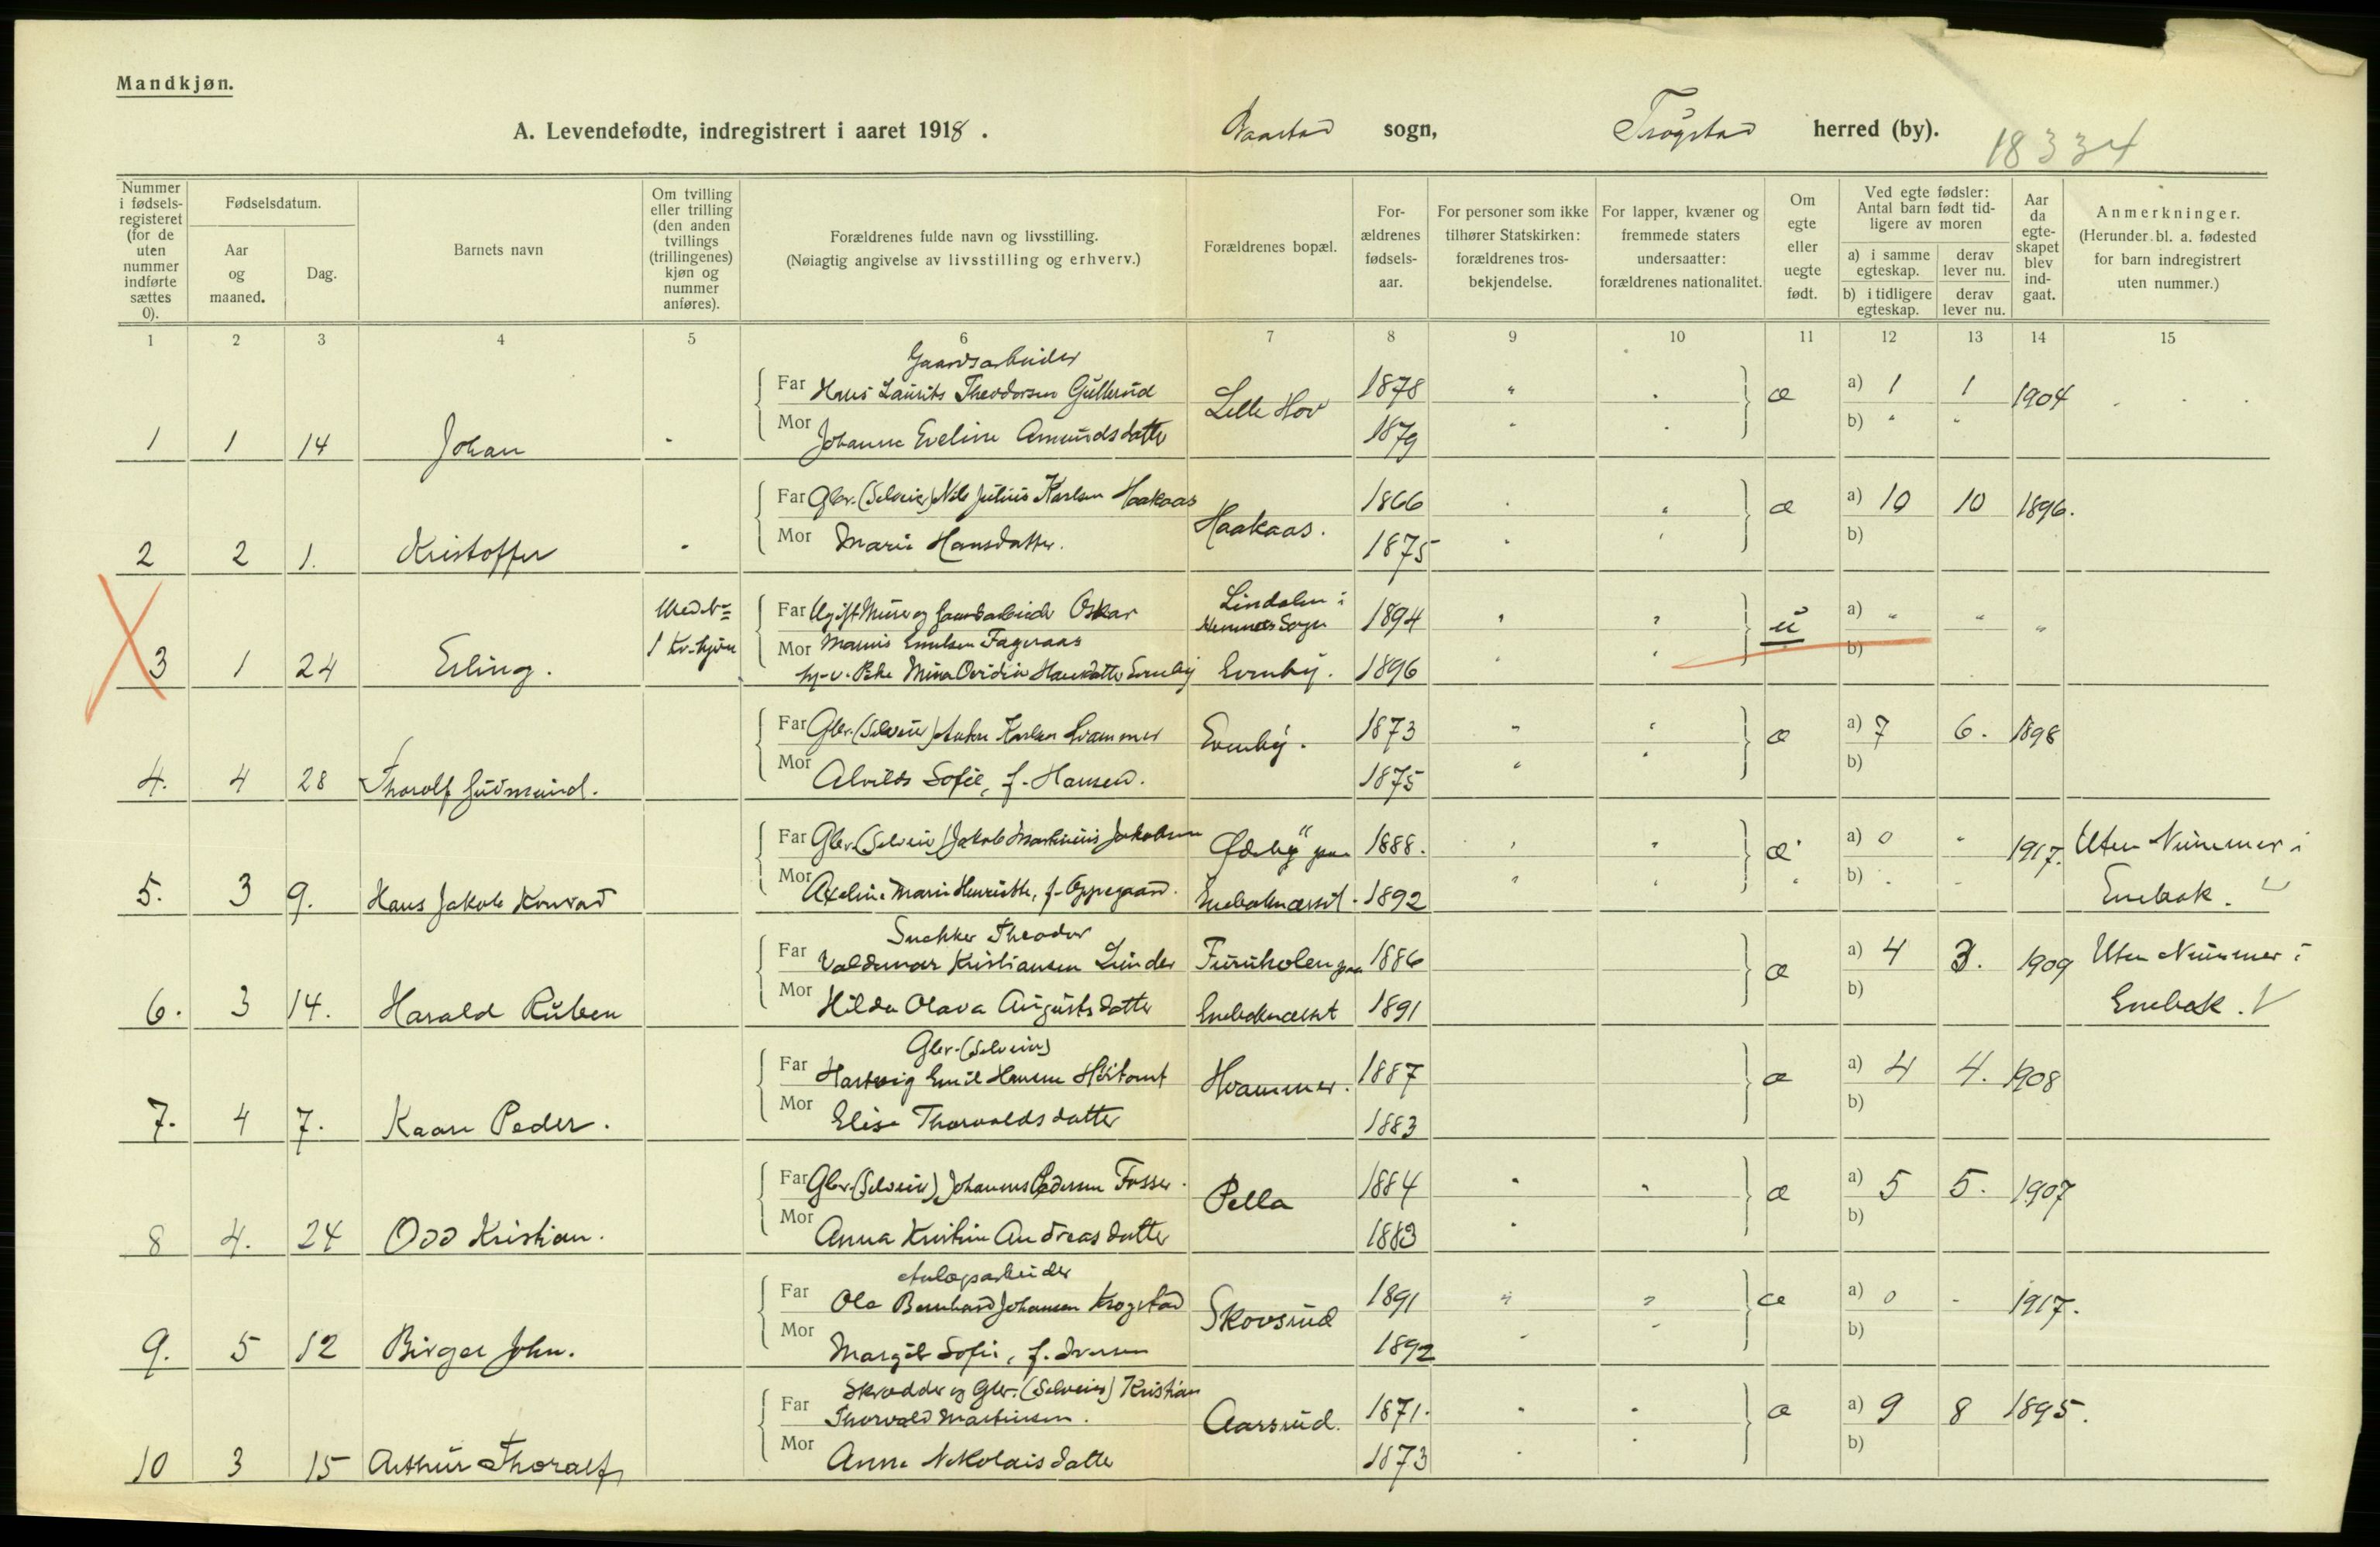 Mandkjøn.
A. Levendefødte, indregistrert i aaret 1918. Baastad sogn, Trøgstad herred (by).
18334
Nummer i fødsels-registeret (for de uten nummer indførte sættes 0).
Fødselsdatum.
Aar og maaned.
Dag.
Barnets navn
Om tvilling eller trilling (den anden tvillings (trillingenes) kjøn og nummer anføres).
Forældrenes fulde navn og livsstilling.
(Nøiagtig angivelse av livsstilling og erhverv.)
Forældrenes bopæl.
For-ældrenes fødsels-aar.
For personer som ikke tilhører Statskirken: forældrenes tros-bekjendelse.
For lapper, kvæner og fremmede staters undersaatter: forældrenes nationalitet.
Om egte eller uegte født.
Ved egte fødsler: Antal barn født tid-ligere av moren
a) i samme egteskap.
derav lever nu.
b) i tidligere egteskap.
derav lever nu.
Aar da egte-skapet blev ind-gaat.
Anmerkninger.
(Herunder bl. a. fødested for barn indregistrert uten nummer.)
1 2 3 4 5 6 7 8 9 10 11 12 13 14 15
Gaardsarbeider
Far Hans Laurits Theodorsen Gullerud Lille Hov 1878 " æ a) 1 1 1904
Mor Johanne Eveline Amundsdatter 1879 " b) " "
1 1 14 Johan
Far Gbr. (Selveier) Nils Julius Karlsen Haakaas Haakaas. 1866 æ a) 10 10 1896.
Mor Marie Hansdatter. 1875 b)
2 2 1. Kristoffer
Far Ugift Murer og Gaardsarbeider Oskar Lindalen i Hemnes Sogn 1894 " " u a) " " "
Med № 1 Kv-kjøn
Mor Marius Emilsen Fageraas b)
3 1 24 Erling.
Pike Mina Ovidia Hansdatter Evenby Evenby. 1896
Far Gbr. (Selveier) Anton Karlsen Hvammer Evenby. 1873 " " æ a) 7 6. 1898
Mor Alvilde Sofie, f. Hansen. 1875 b)
4. 4 28 Thorolf Gudmund.
Far Gbr. (Selveier) Jakob Martinius Jakobsen paa 1888. æ a) 0 - 1917. Uten Nummer i
Mor Axeline Marie Henriette, f. Oppegaard. Enebaknæsset. 1892 b) Enebak.
5. 3 9. Hans Jakob Konrad
Snekker Theodor
Far Valdemar Kristiansen Lunder Furuholen paa 1886 æ a) 4 3. 1909 Uten Nummer i
Mor Hilda Olava Augustsdatter Enebaknæsset 1891 b) Enebak. V
6. 3 14. Harald Ruben
Gbr. (Selveier)
Far Hartvig Emil Hansen Hvammer. 1887 æ a) 4 4. 1908
Mor Elise Thorvaldsdatter 1883 b)
7. 4 7. Kaare Peder.
Far Gbr. (Selveier) Johannes Pedersen Fosser. Pella 1884 " " æ a) 5 5. 1907
Mor Anna Kristine Andreasdatter 1883 " b)
8 4. 24 Odd Kristian.
Anlægsarbeider
Far Ole Bernhard Johansen Krogstad Skovsrud 1891 " " æ a) 0 - 1917.
Mor Margit Sofie, f. Iversen 1892 b)
9. 5 12 Birger John.
Skrædder og Gbr. (Selveier) Kristian
Far Thorvald Martinsen. Aarsrud. 1871. " " æ a) 9 8 1895.
Mor Anne Nikolaisdatter 1873 b)
10 3 15 Arthur Thoralf